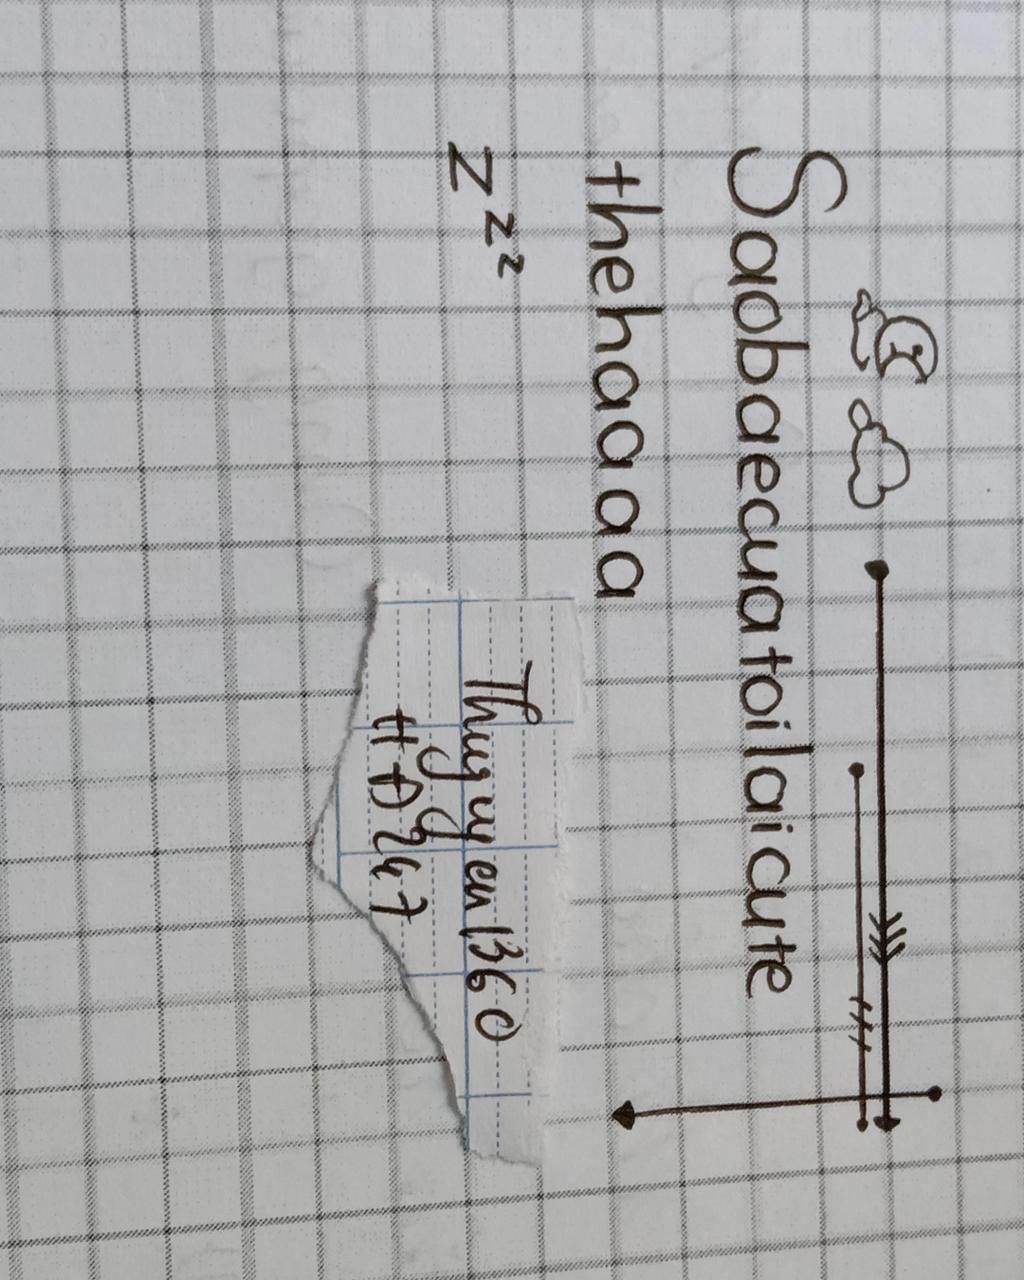 Saobaecuatoilaicute
thehaaaa
zzz
Thuyuyen1360
HĐ247